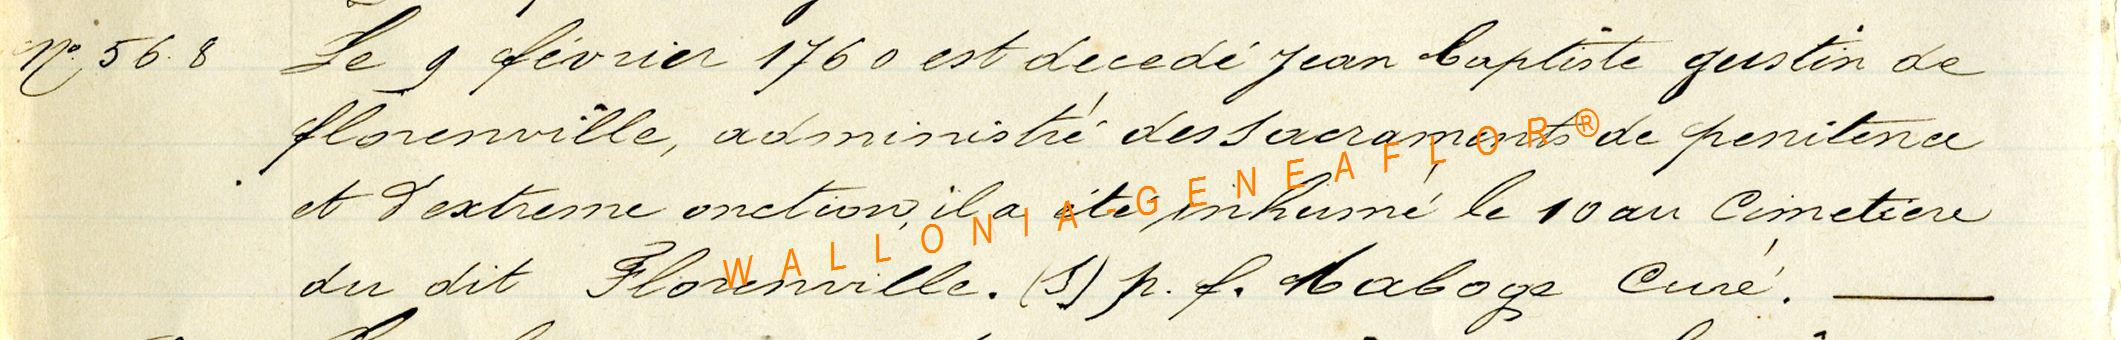 N° 56.8 Le 9 février 1760 est décedé Jean baptiste gustin de
florenville, administré des Sacraments de penitence
et d'extreme onction, il a été inhumé le 10 au Cimetiere
du dit Florenville. (S) p. f. Maboge Curé.
WALLONIA-GENEAFLOR®